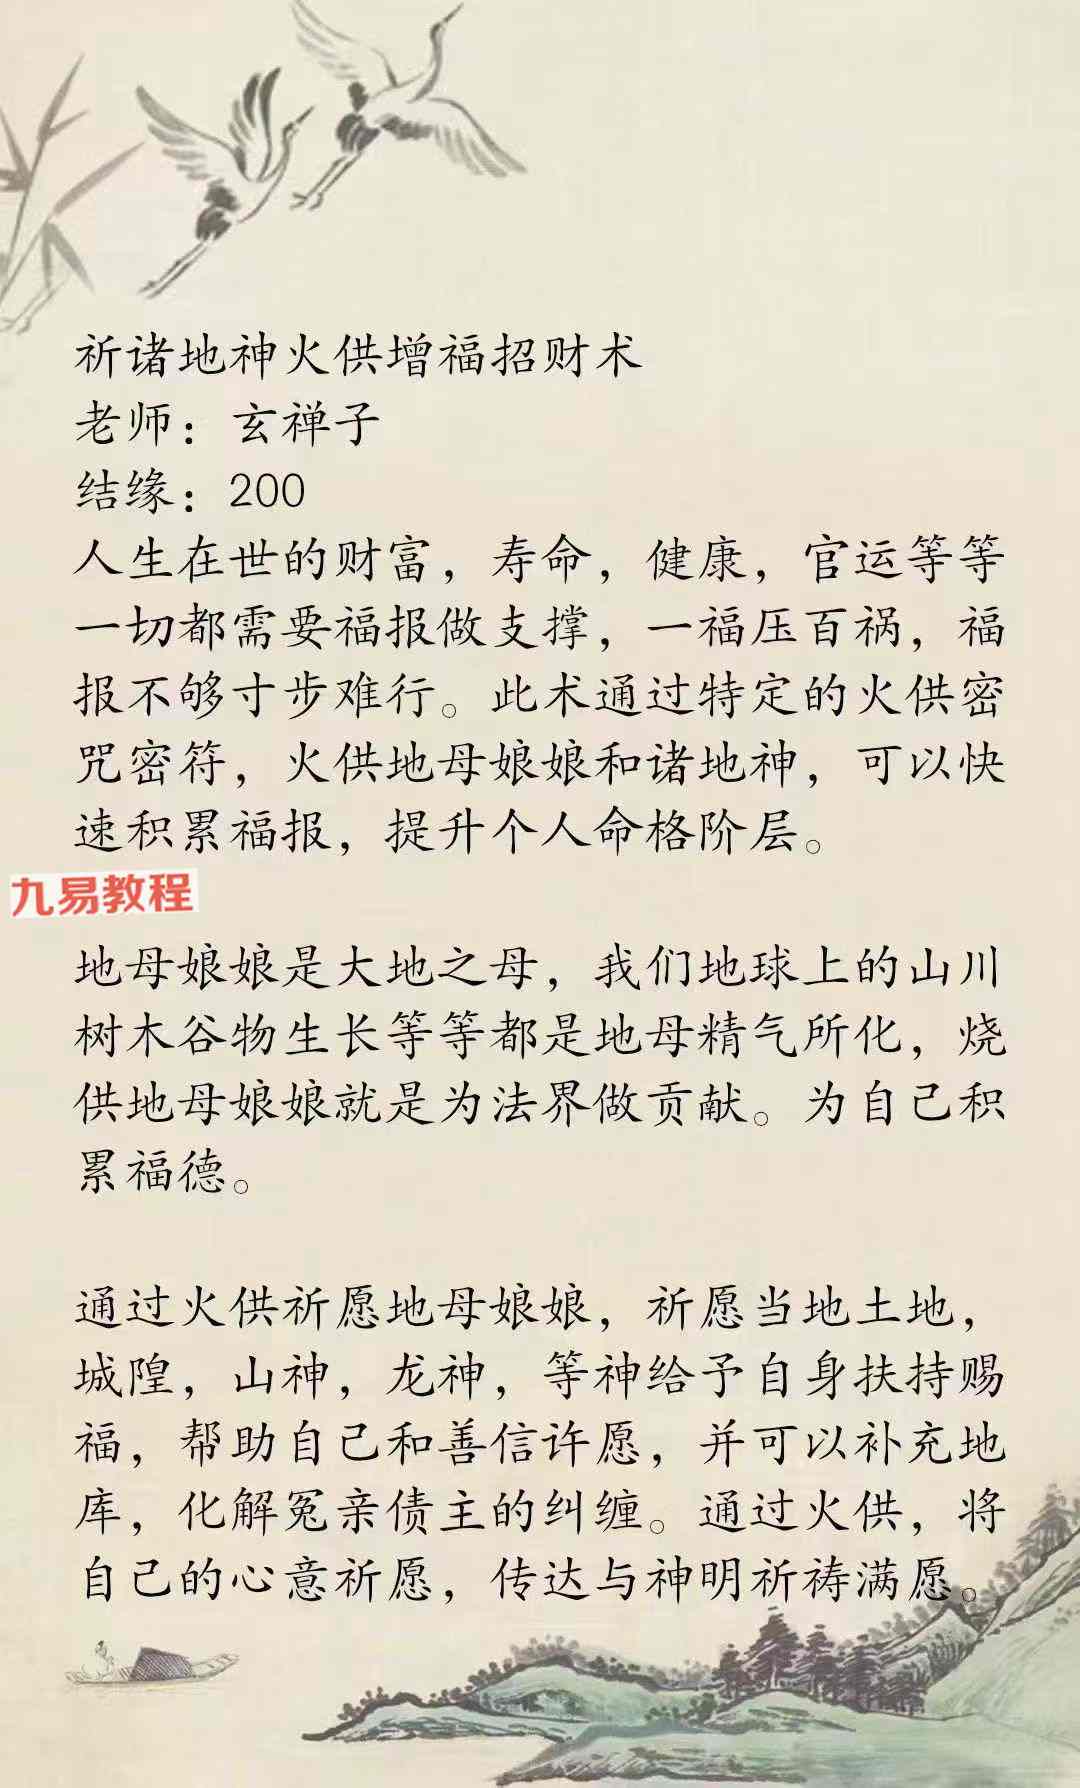 祈诸地神火供增福招财术
老师：玄禅子
结缘：200
人生在世的财富，寿命，健康，官运等等
一切都需要福报做支撑，一福压百祸，福
报不够寸步难行。此术通过特定的火供密
咒密符，火供地母娘娘和诸地神，可以快
速积累福报，提升个人命格阶层。
九易教程
地母娘娘是大地之母，我们地球上的山川
树木谷物生长等等都是地母精气所化，烧
供地母娘娘就是为法界做贡献。为自己积
累福德。
通过火供祈愿地母娘娘，祈愿当地土地，
城隍，山神，龙神，等神给予自身扶持赐
福，帮助自己和善信许愿，并可以补充地
库，化解冤亲债主的纠缠。通过火供，将
自己的心意祈愿，传达与神明祈祷满愿。